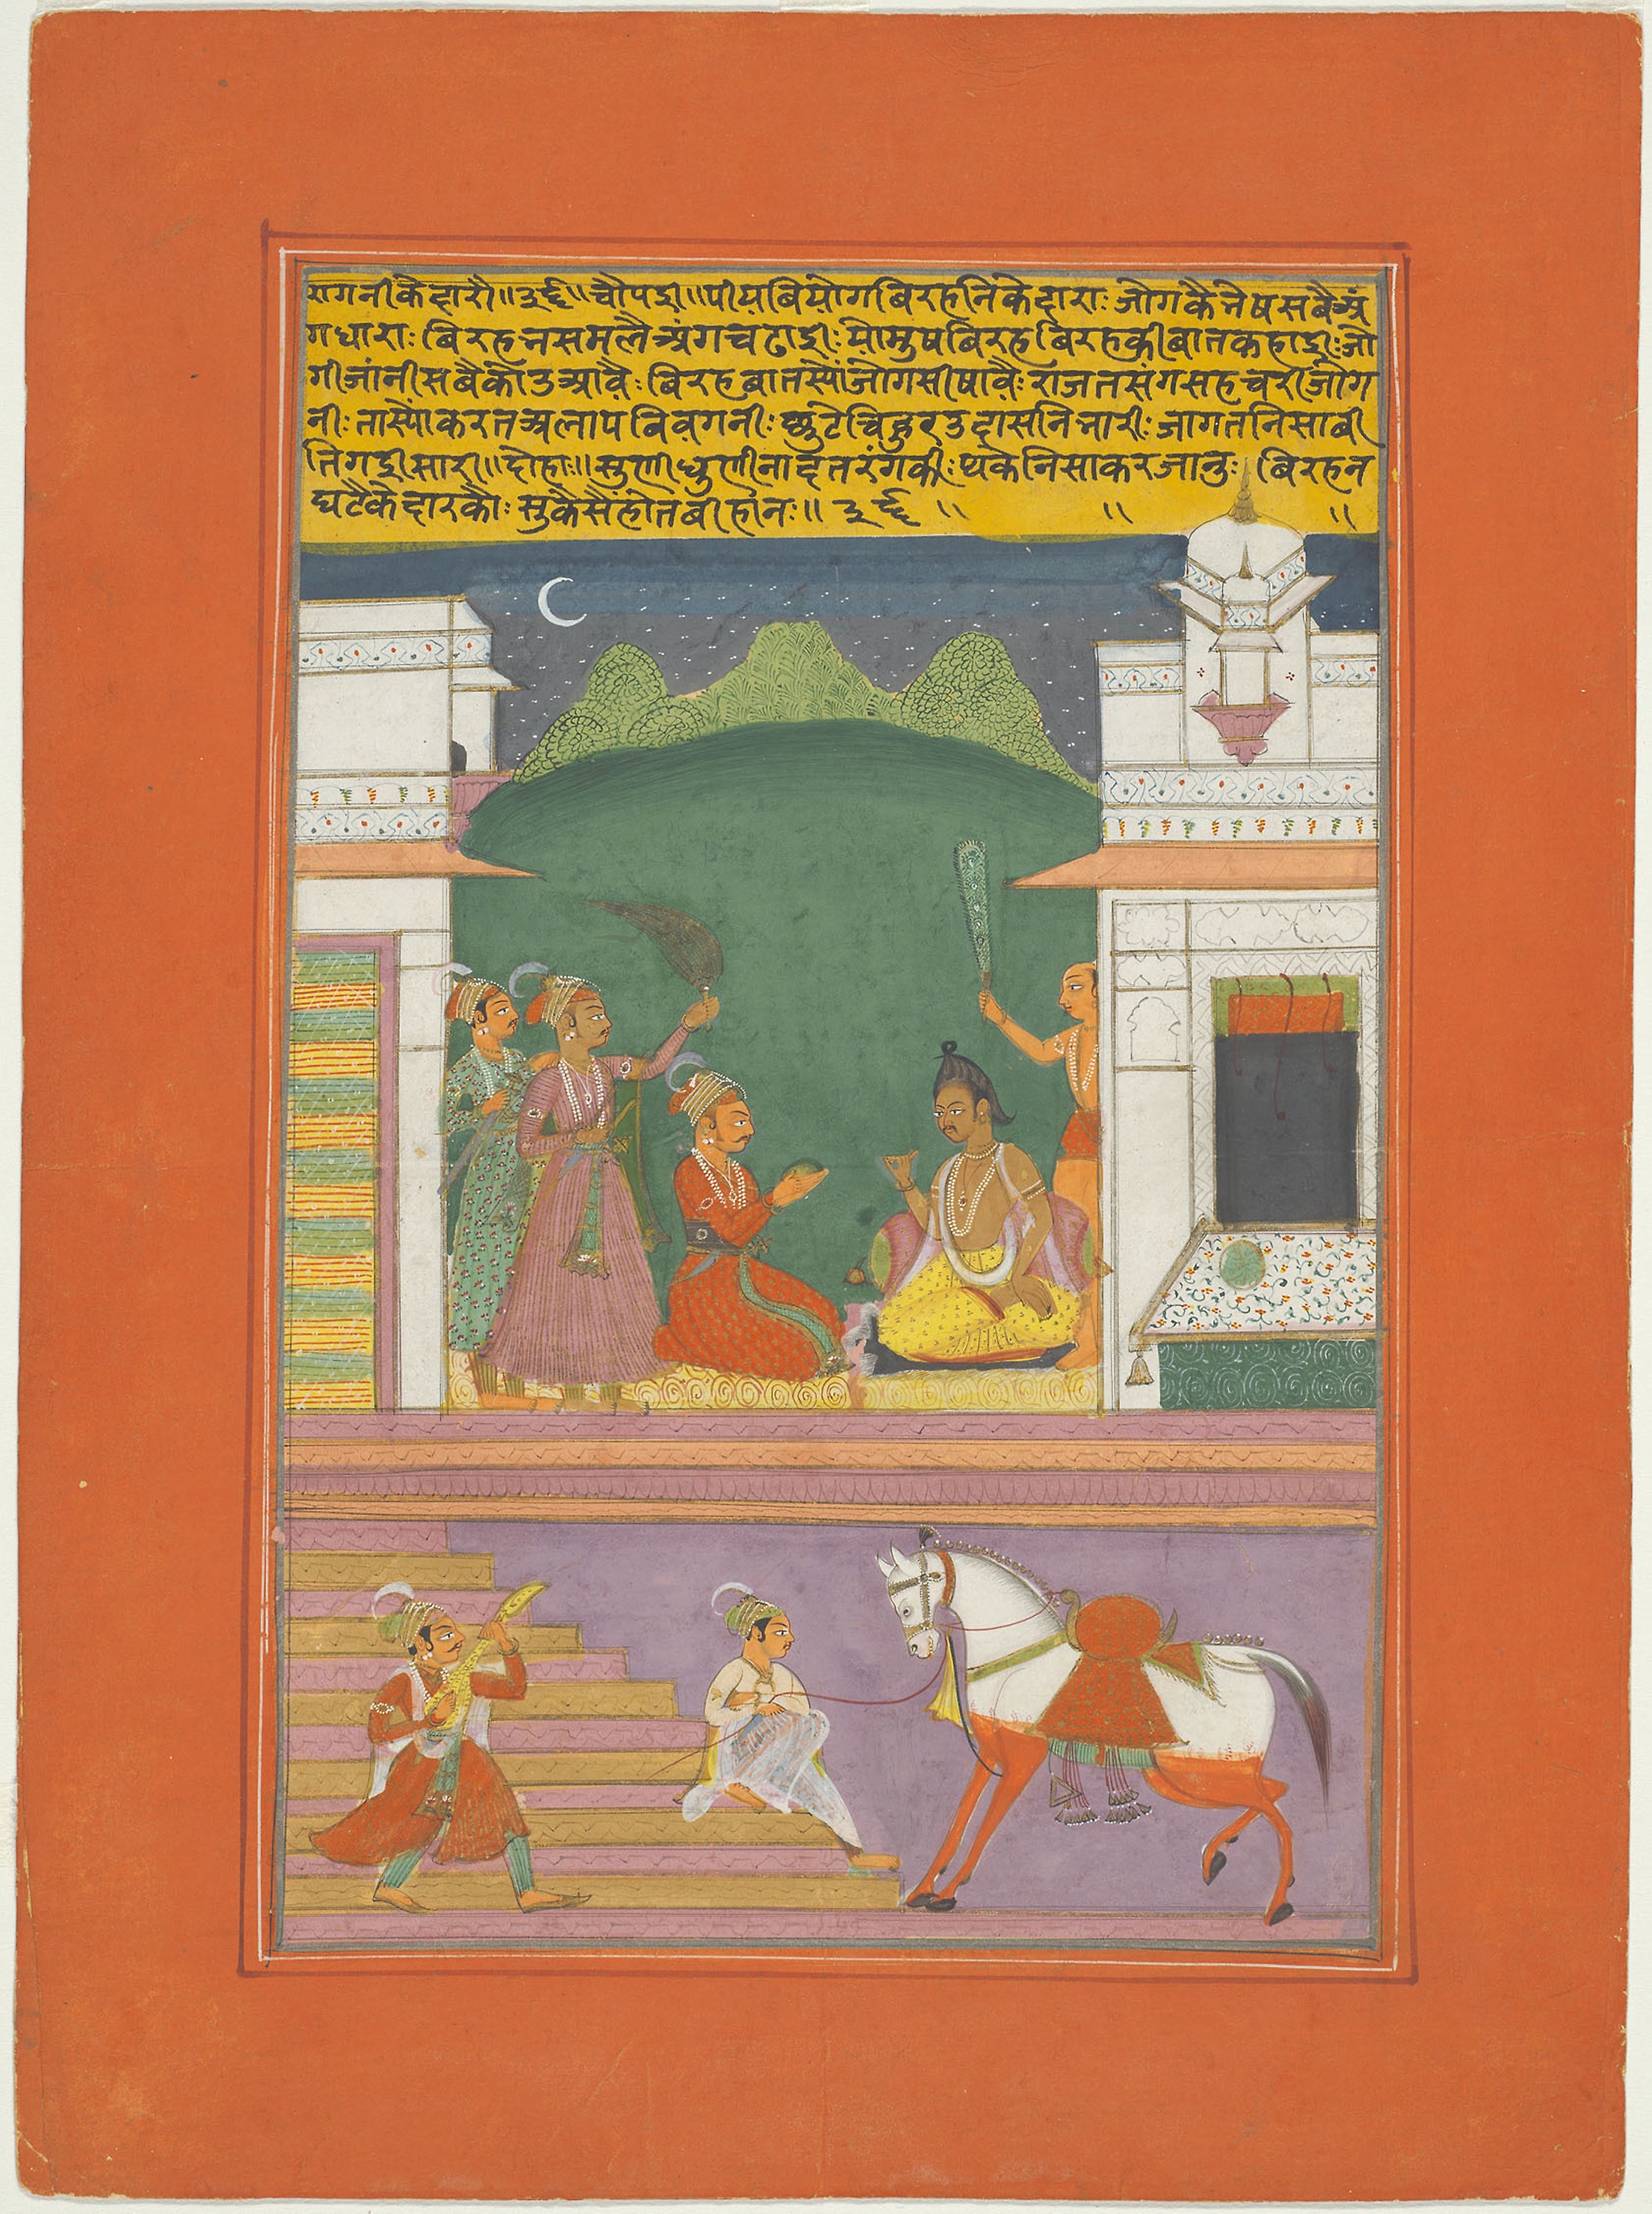 रागनीकेदारो॥३६॥चौपदी॥पीयबियोगबिरहनिकेदाराः जोगकैनेषसबैअं
गधाराः बिरहनसमलैअंगचढाईः योमुषबिरहबिरहकीबातकहाईः जो
गीजांनीसबैकोउआवैः बिरहबातस्योंजोगसीषावैः राजतसंगसहचरीजोग
नीः तास्योंकरतअलापबिवगनीः छुटेचिहुरउदासनिनारीः जागतनिसाबी
तिगईसारी॥दोहाः॥सुणीधुणीनादतरंगकीः थकेनिसाकरजानुः बिरहन
घटैकेदारकौः सुकैसैंहोतबीहांनः॥ ३६ ॥ ॥ ॥